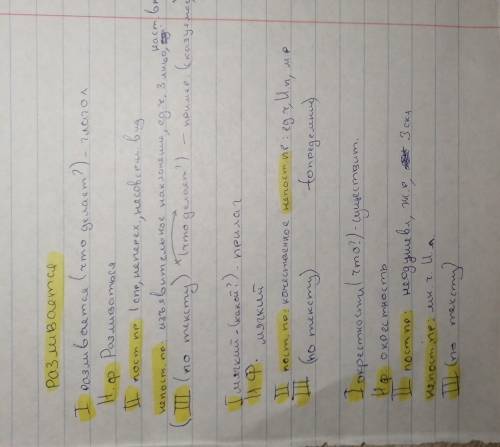 разливается
I разливается (что делает?) - глагол
Н.ф. Разливаться
II пост пр: I спр, неперех, несоверш вид
непост.пр. изъявительное наклонение, ед.ч, 3 лицо, наст вр
(III (по тексту) (что делает?) - пример. (сказуемое)
I мягкий - (какой?) - прилаг
Н.Ф. мягкий
II пост.пр: качественное непост.пр: ед.ч, И.п, м.р
III (по тексту) (определение)
I окрестности (что?) - существит.
Н.ф окрестность
II пост.пр: неодушевл, ж.р, 3 скл
непост.пр: мн.ч И.п
III (по тексту)